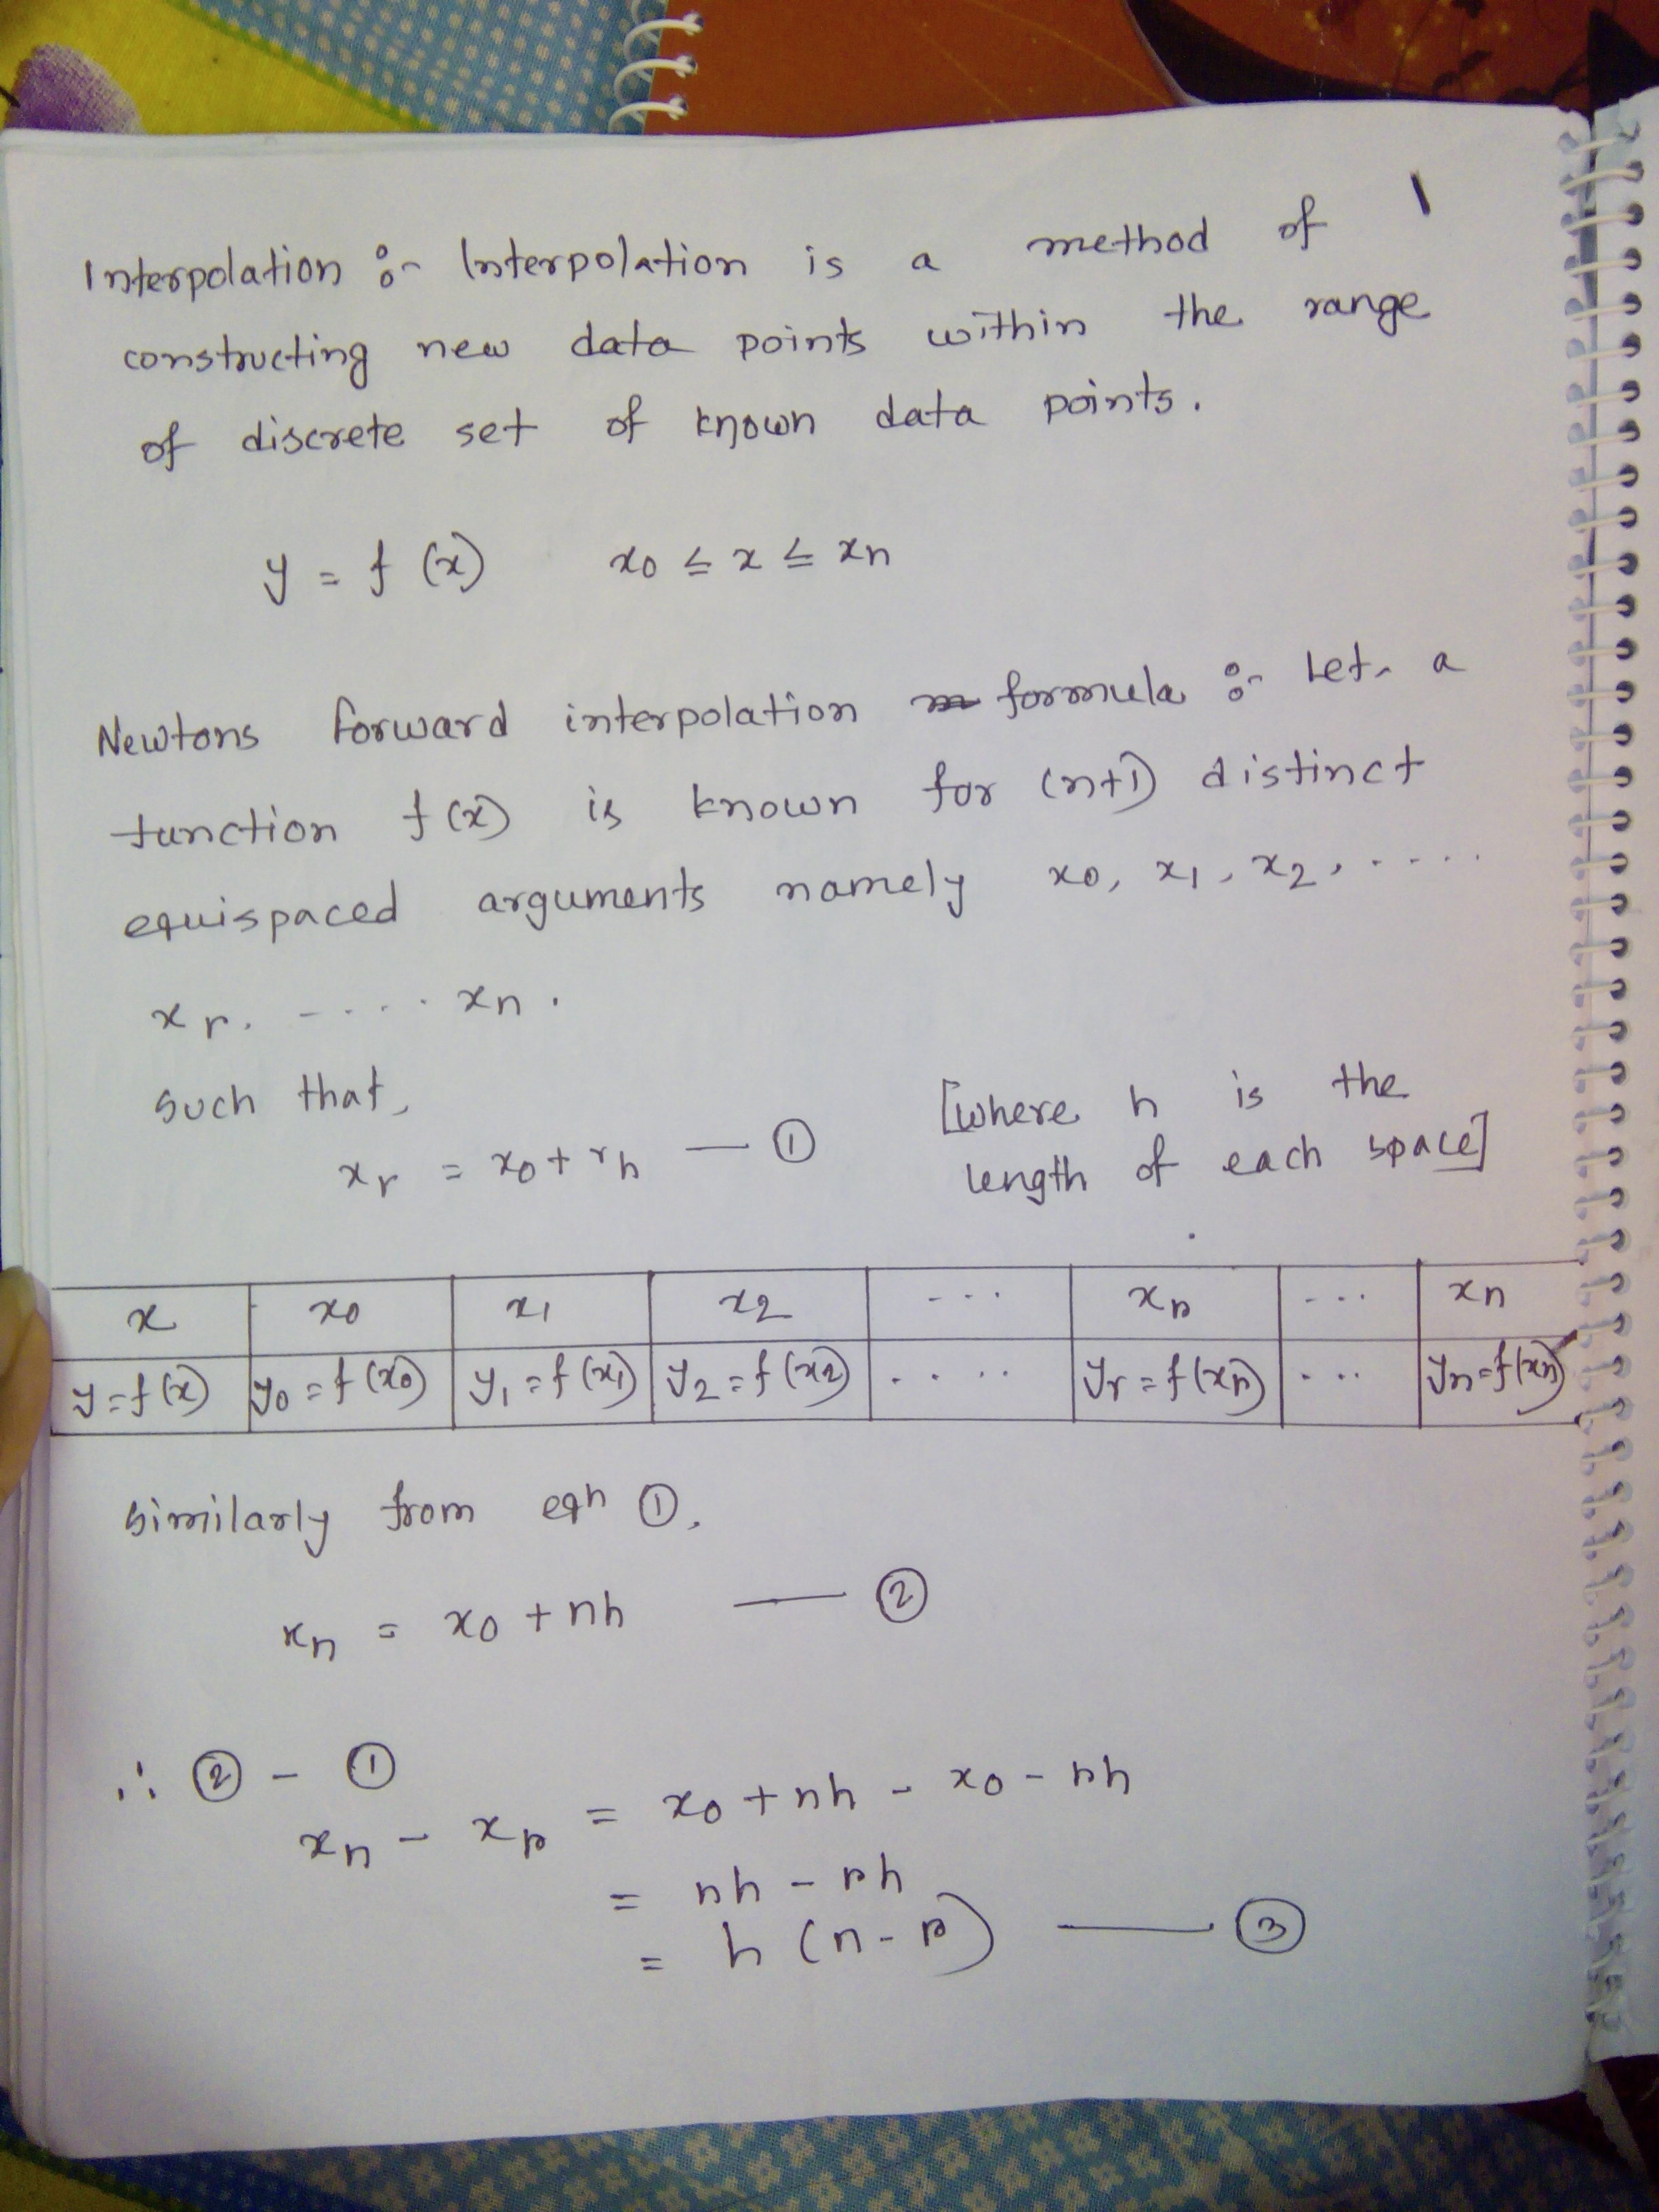 1
Interpolation :- Interpolation is a method of
constructing new data points within the range
of discrete set of known data points.
y = f(x) x0 ≤ x ≤ xn
Newtons forward interpolation formula :- Let a
function f(x) is known for (n+1) distinct
equispaced arguments namely x0, x1, x2, .....
xr. ..... xn.
such that,
[where h is the
xr = x0 + rh — ①
length of each space]
x x0 x1 x2 ... xr ... xn
y=f(x) y0=f(x0) y1=f(x1) y2=f(x2) .... yr=f(xr) ... yn=f(xn)
similarly from eqn ①,
xn = x0 + nh — ②
∴ ② - ①
xn - xr = x0 + nh - x0 - rh
= nh - rh
= h (n - r) — ③